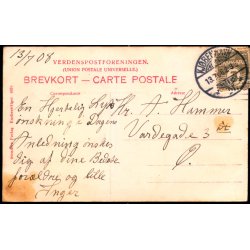 13/7 08
VERDENSPOSTFORENINGEN.
(UNION POSTALE UNIVERSELLE.)
BREVKORT — CARTE POSTALE
Correspondance. Adresse.
En Hjertelig Lyk
ønskning i Dagens
Anledning ønskes
Dig af dine Bedste
forældre og lille
Inger
Hr. A. Hammer
Vardegade 3
Ø.